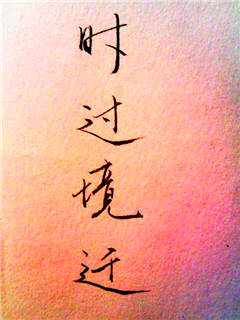 时过境迁